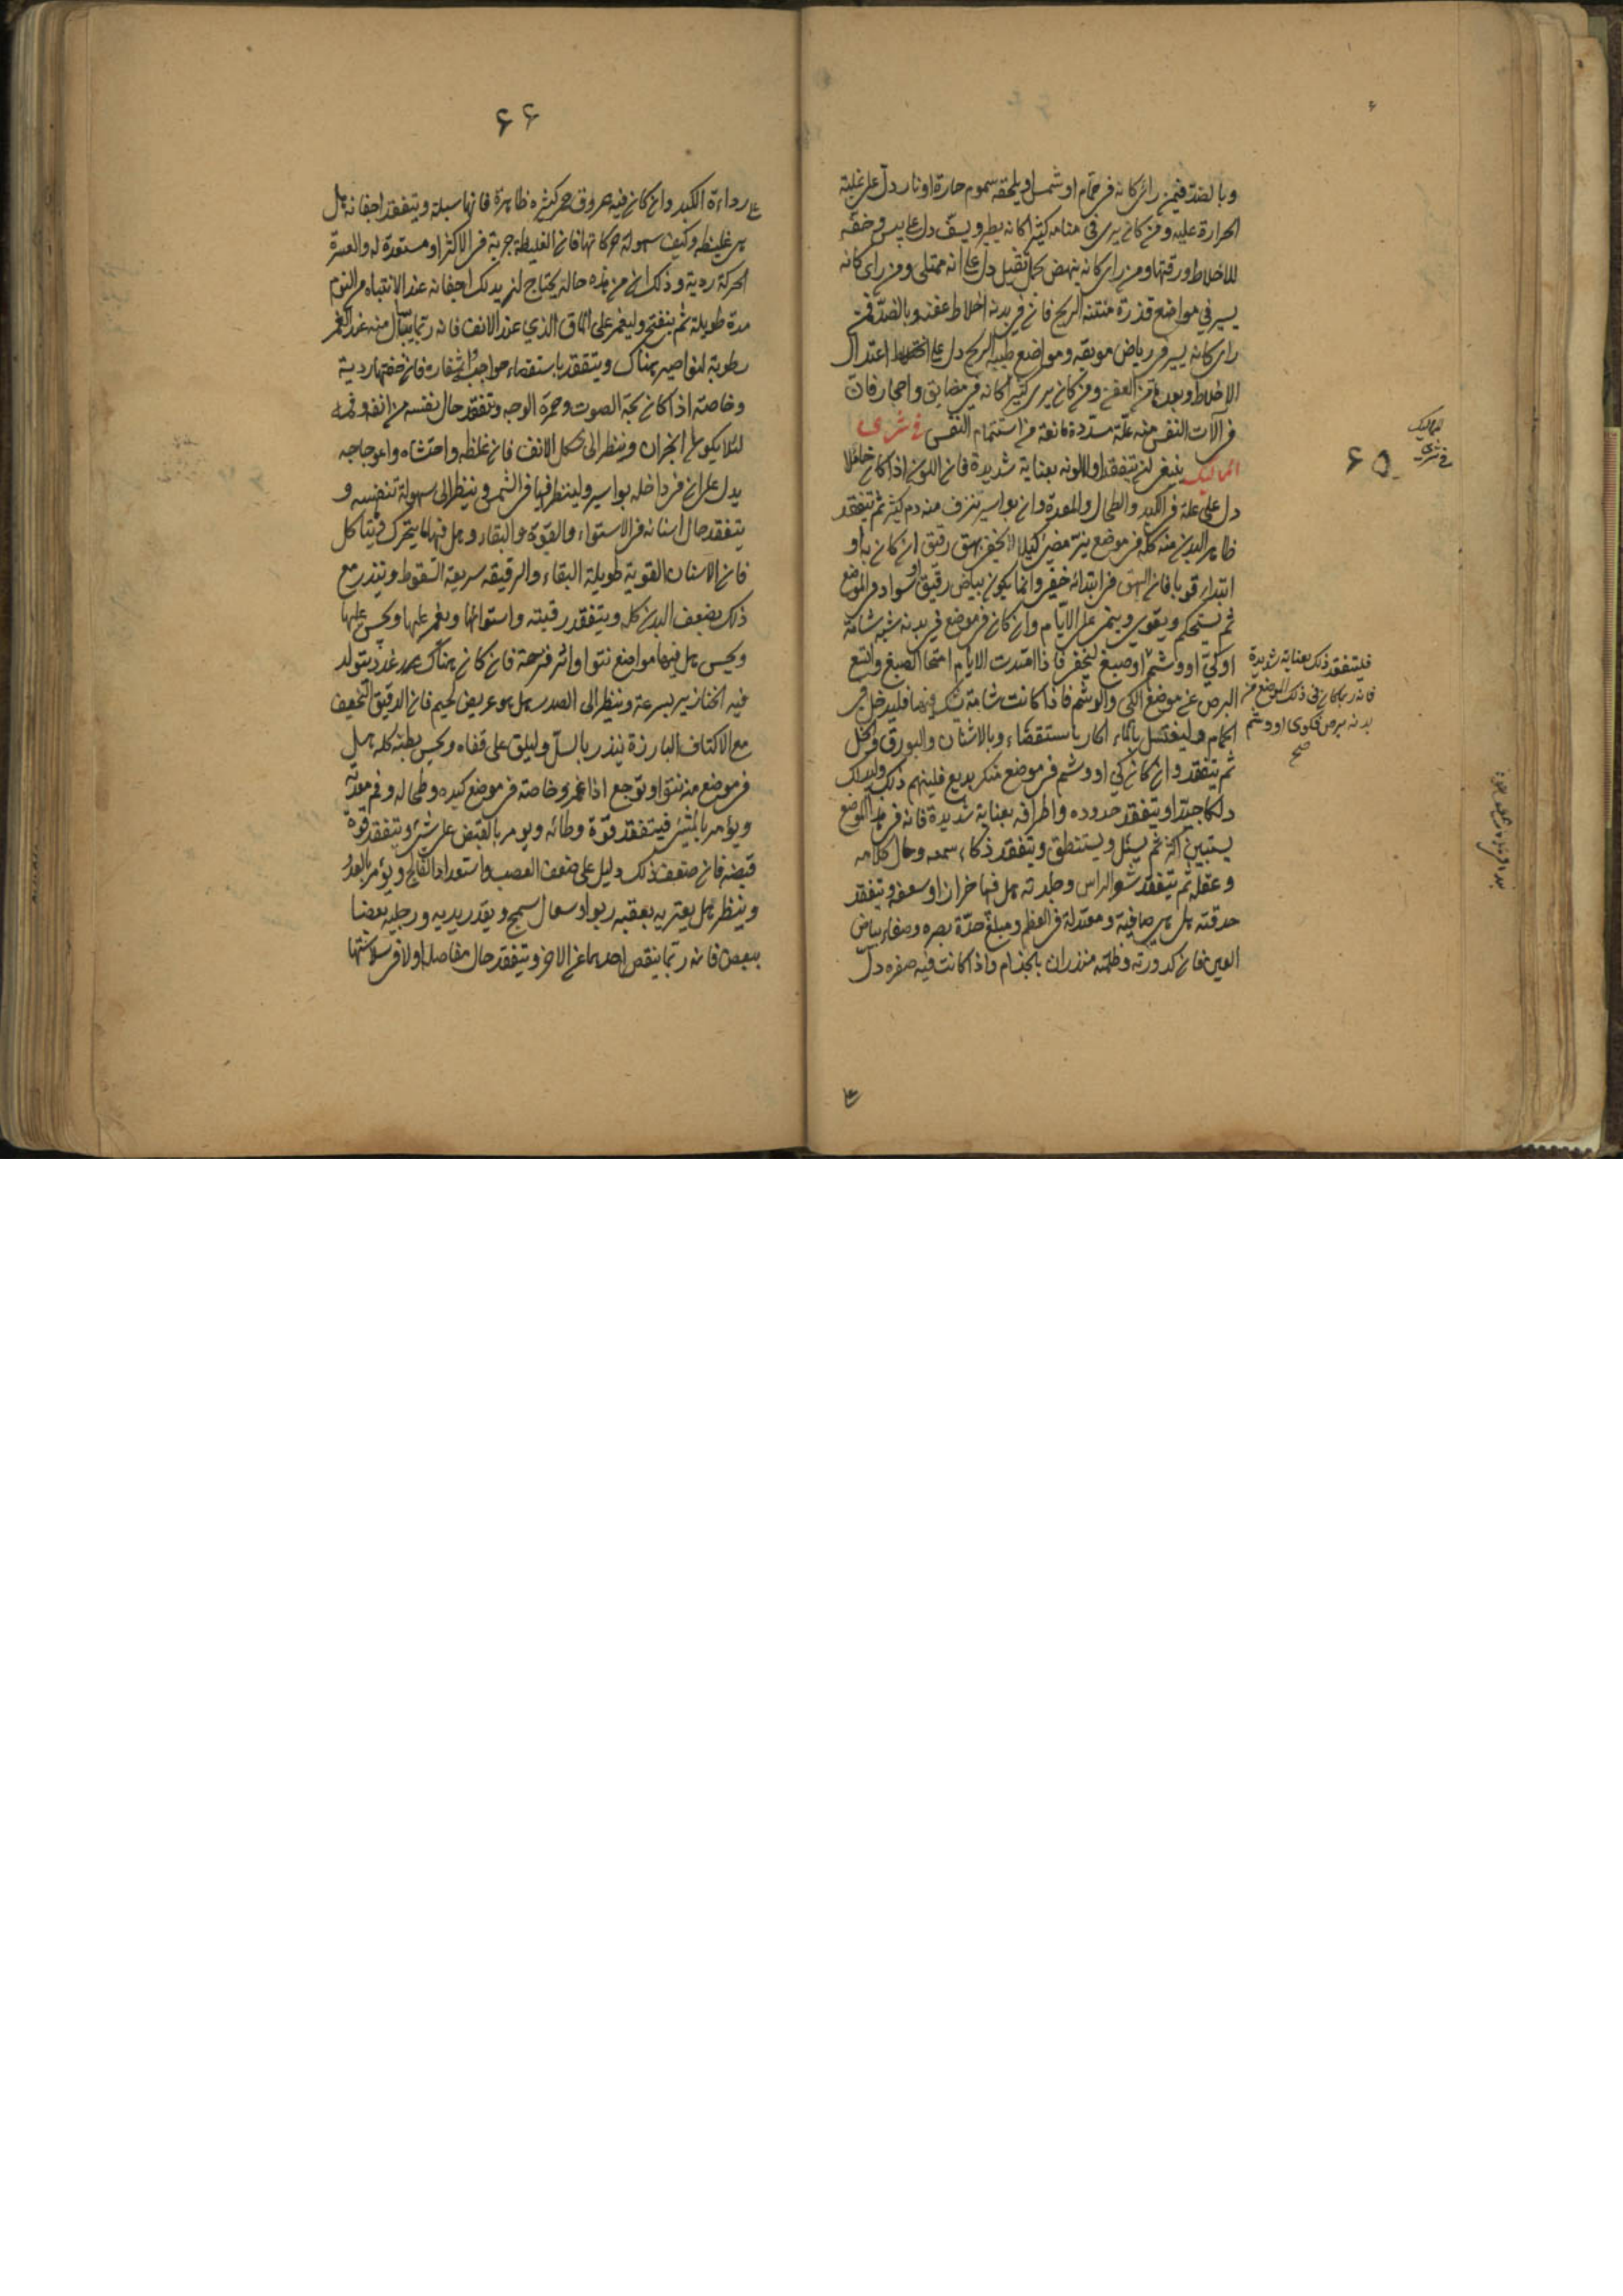 وبالضد فيمن رائ كانه في حمام او شمس او يلحقه سموم حارة او نار دل على غلبة
الحرارة عليه ومن كان يرى في منامه كثيرا كانه يطير ويسف دل على يبس وخفة
للاخلاط ورقتها ومن راى كانه ينهض بحمل ثقيل دل على انه ممتلى ومن راى كانه
يسير في مواضع قذرة منتنة الريح فان في بدنه اخلاط عفنة وبالضد فمن
راى كانه يسير في رياض مونقه ومواضع طيبة الريح دل على اعتدال
الاخلاط وبعدها من العفن ومن كان يرى كثيرا كانه في مضايق واحجار فان
في آلات النفس منه علة مسددة مانعة من استتمام النفس في شرى
المماليك ينبغي ان يتفقد اولا لونه بعناية شديدة فان اللون اذا كان حائلا
دل على علة في الكبد والطحال والمعدة وان بواسير تنزف منه دم كثير ثم يتفقد
ظاهر البدن منه كله في موضع نير مضيئ كيلا يخفى بهق رقيق ان كان به او
ابتداء قوبا فان البهق في ابتدائه خفي وانما يكون بياض رقيق او سواد في الموضع
ثم يستحكم ويقوى وينمى على الايام وان كان في موضع في بدنه شبه شامة
او كي او وشم او صبغ ليخفى فاذا امتدت الايام امتحا الصبغ واتسع
البرص عن موضع الكي والوشم فاذا كانت شامة تشك فيها فليدخل في
الحمام وليغتسل بالماء الحار باستقصاء وبالاشنان والبورق والخل
ثم يتفقد وان كان كي او وشم في موضع منكر بديع فليتهم ذلك وليدلك
دلكا جيدا ويتفقد حدوده واطرافه بعناية شديدة فانه في هذا الموضع
يستبين اكثر ثم يسئل ويستنطق ويتفقد ذكاء سمعه وحال كلامه
وعقله ثم يتفقد شعر الراس وجلدته هل فيها خزاز او سعفة ويتفقد
حدقته هل هي صافية ومعتدلة في العظم ومبلغ حدة بصره وصفاء بياض
العين فان كدورته وظلمته منذران بالجذام واذا كانت فيه صفره دل
على
المماليك
في شرى
۶۵
فليتفقد ذلك بعناية شديدة
فانه ربما كان في ذلك الموضع من
بدنه برص فكوى او وشم
صح
۶۶
على رداءة الكبد وان كان فيه عروق حمر كثيره ظاهرة فانها سبلة ويتفقد اجفانه هل
هى غليظه وكيف سهولة حركاتها فان الغليظة جربة في الاكثر او مستعدة له والعسرة
الحركة ردية وذلك ان من هذه حالته يحتاج ان يدلك اجفانه عند الانتباه من النوم
مدة طويلة ثم ينفتح وليغمز على الماق الذي عند الانف فانه ربما يسأل منه عند الغمز
رطوبة لنواصير هناك ويتفقد باستقصاء حواجب واشفار فان خفتها ردية
وخاصة اذا كان بحة الصوت وحمرة الوجه ويتفقد حال نفسه من انفه وفمه
لئلا يكون به ابخران وينظر الى شكل الانف فان غلظه واحتشاه واعوجاجه
يدل على ان في داخله بواسير ولينظر فيها في الشمس وينظر الى سهولة تنفسه و
يتفقد حال اسنانه في الاستواء والقوة والبقاء وهل فيها ما يتحرك ويتاكل
فان الاسنان القوية طويلة البقاء والرقيقه سريعة السقوط وينذر مع
ذلك بضعف البدن كله ويتفقد رقبته واستوائها ويغمز عليها ويحس عليها
ويحس هل فيها مواضع نتوا واثر قرحة فان كان هناك غدد يتولد
فيه الخنازير بسرعة وينظر الى الصدر هل هو عريض لحيم فان الدقيق النحيف
مع الاكتاف البارزة ينذر بالسل وليلق على قفاه ويحس بطنه كله هل
في موضع منه نتوا وتوجع اذا غمز وخاصة في موضع كبده وطحاله وفم معدته
ويؤمر بالمشئ فيتفقد قوة وطائه ويومر بالقبض على شئ ويتفقد قوة
قبضه فان ضعف ذلك دليل على ضعف العصب واستعداد الفالج ويؤمر بالعدو
وينظر هل يعتريه بعقبه ربو او سعال سمج ويقدر يديه ورجليه بعضا
ببعض فانه ربما ينقص احدهما عن الاخر ويتفقد حال مفاصله اولا في سلاستها